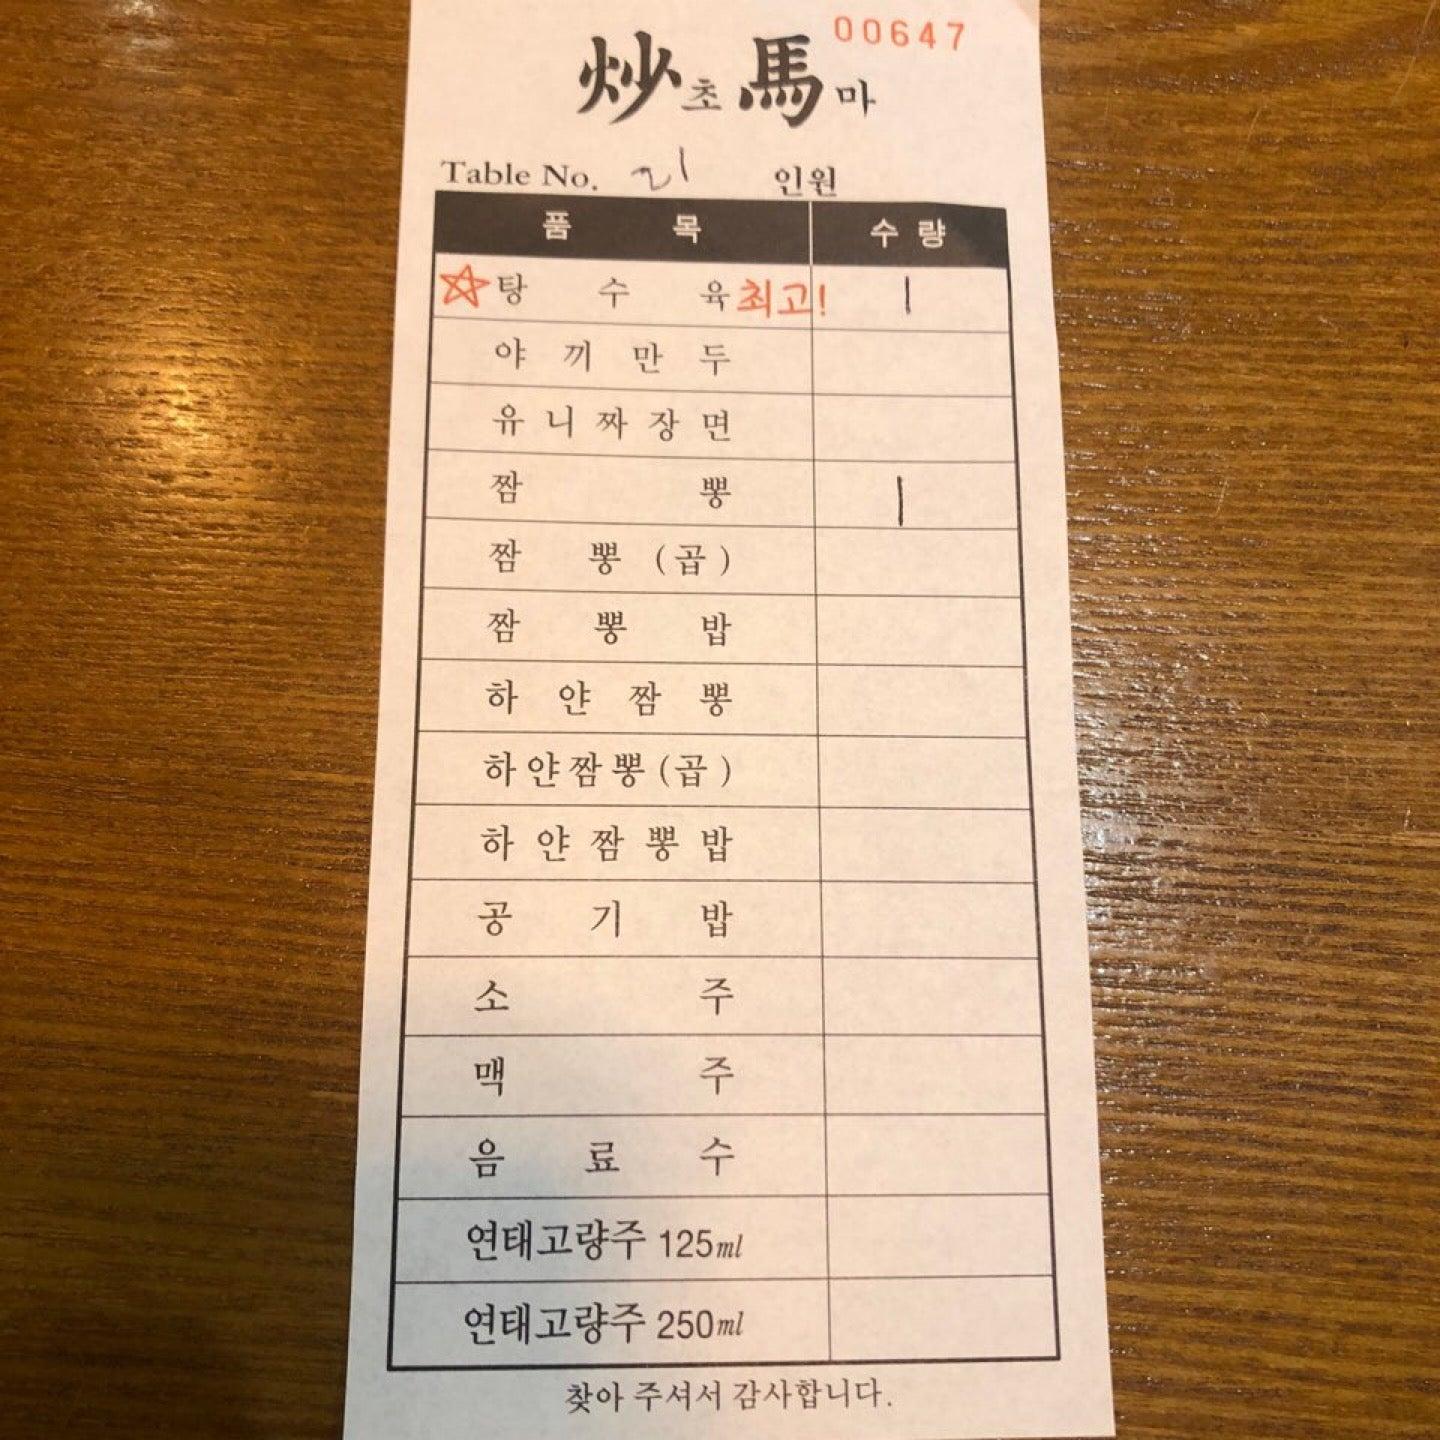 00647
炒초馬마
Table No. 21 인원
품목 수량
☆탕수육 최고! 1
야끼만두
유니짜장면
짬뽕 1
짬뽕(곱)
짬뽕밥
하얀짬뽕
하얀짬뽕(곱)
하얀짬뽕밥
공기밥
소주
맥주
음료수
연태고량주 125ml
연태고량주 250ml
찾아 주셔서 감사합니다.